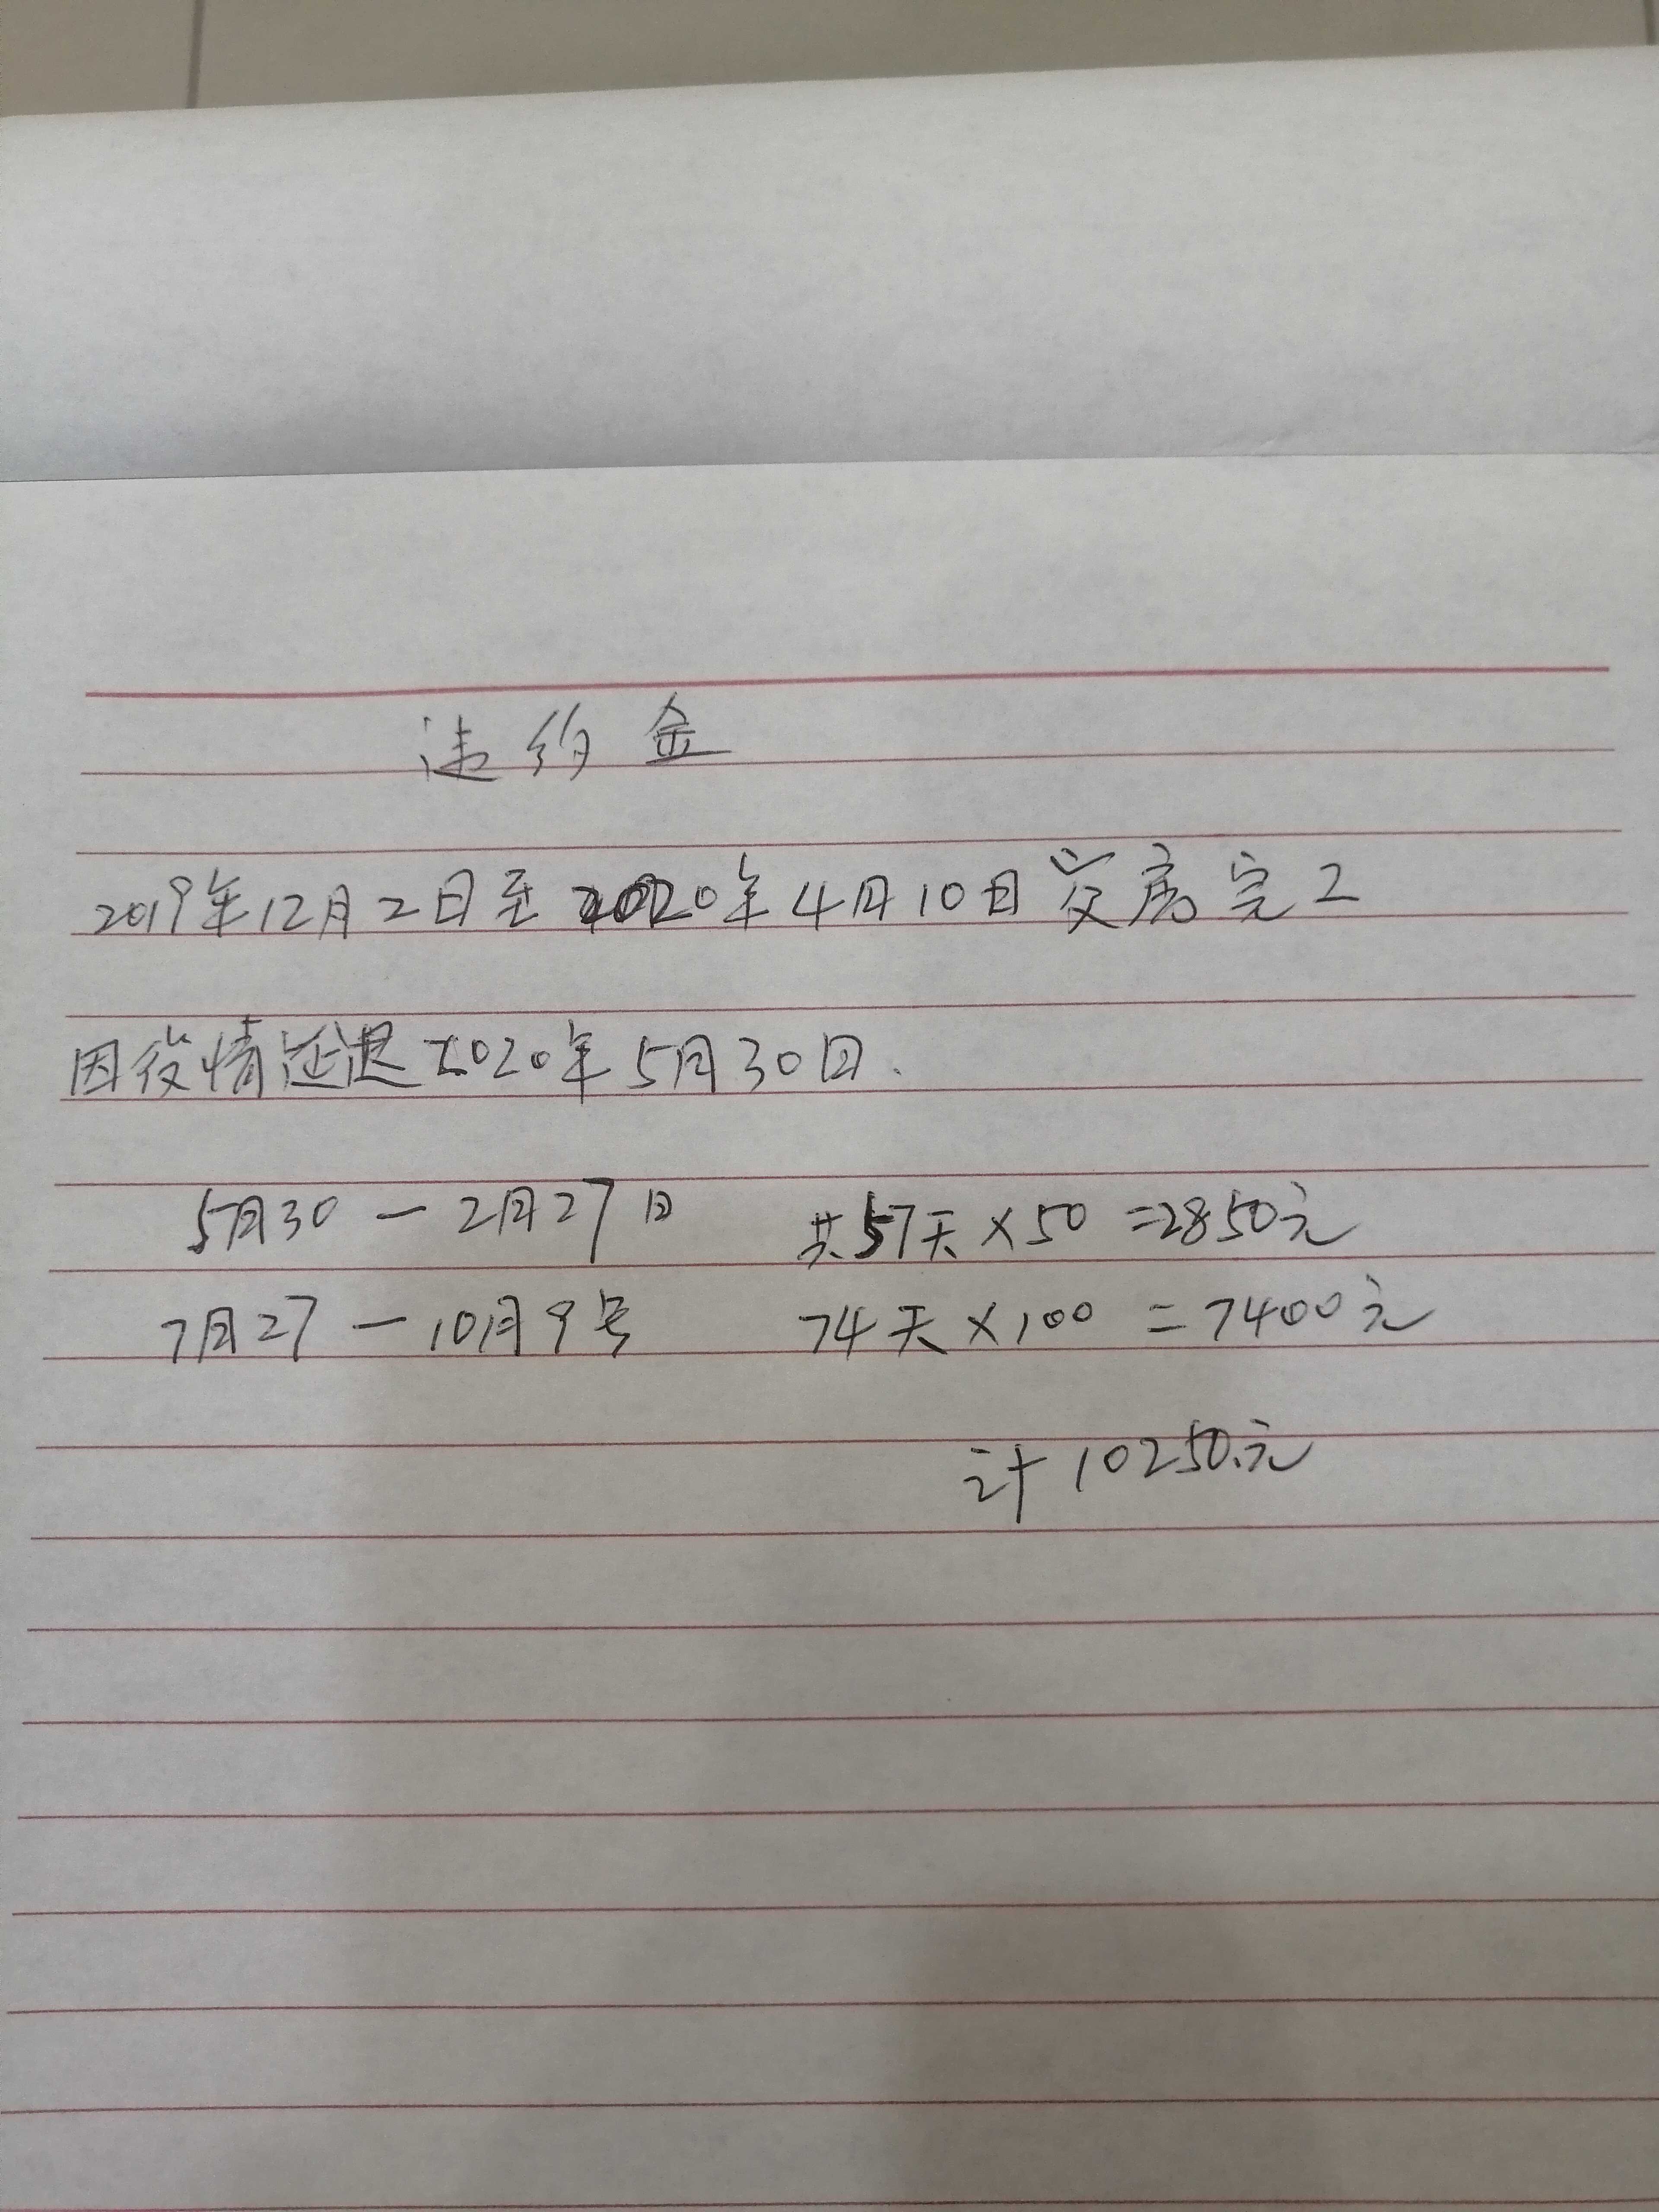 违约金
2019年12月2日至2020年4月10日交房完工
因役情延退2020年5月30日.
5月30-2月27日 共57天×50=2850元
7月27-10月9号 74天×100=7400元
计10250.元